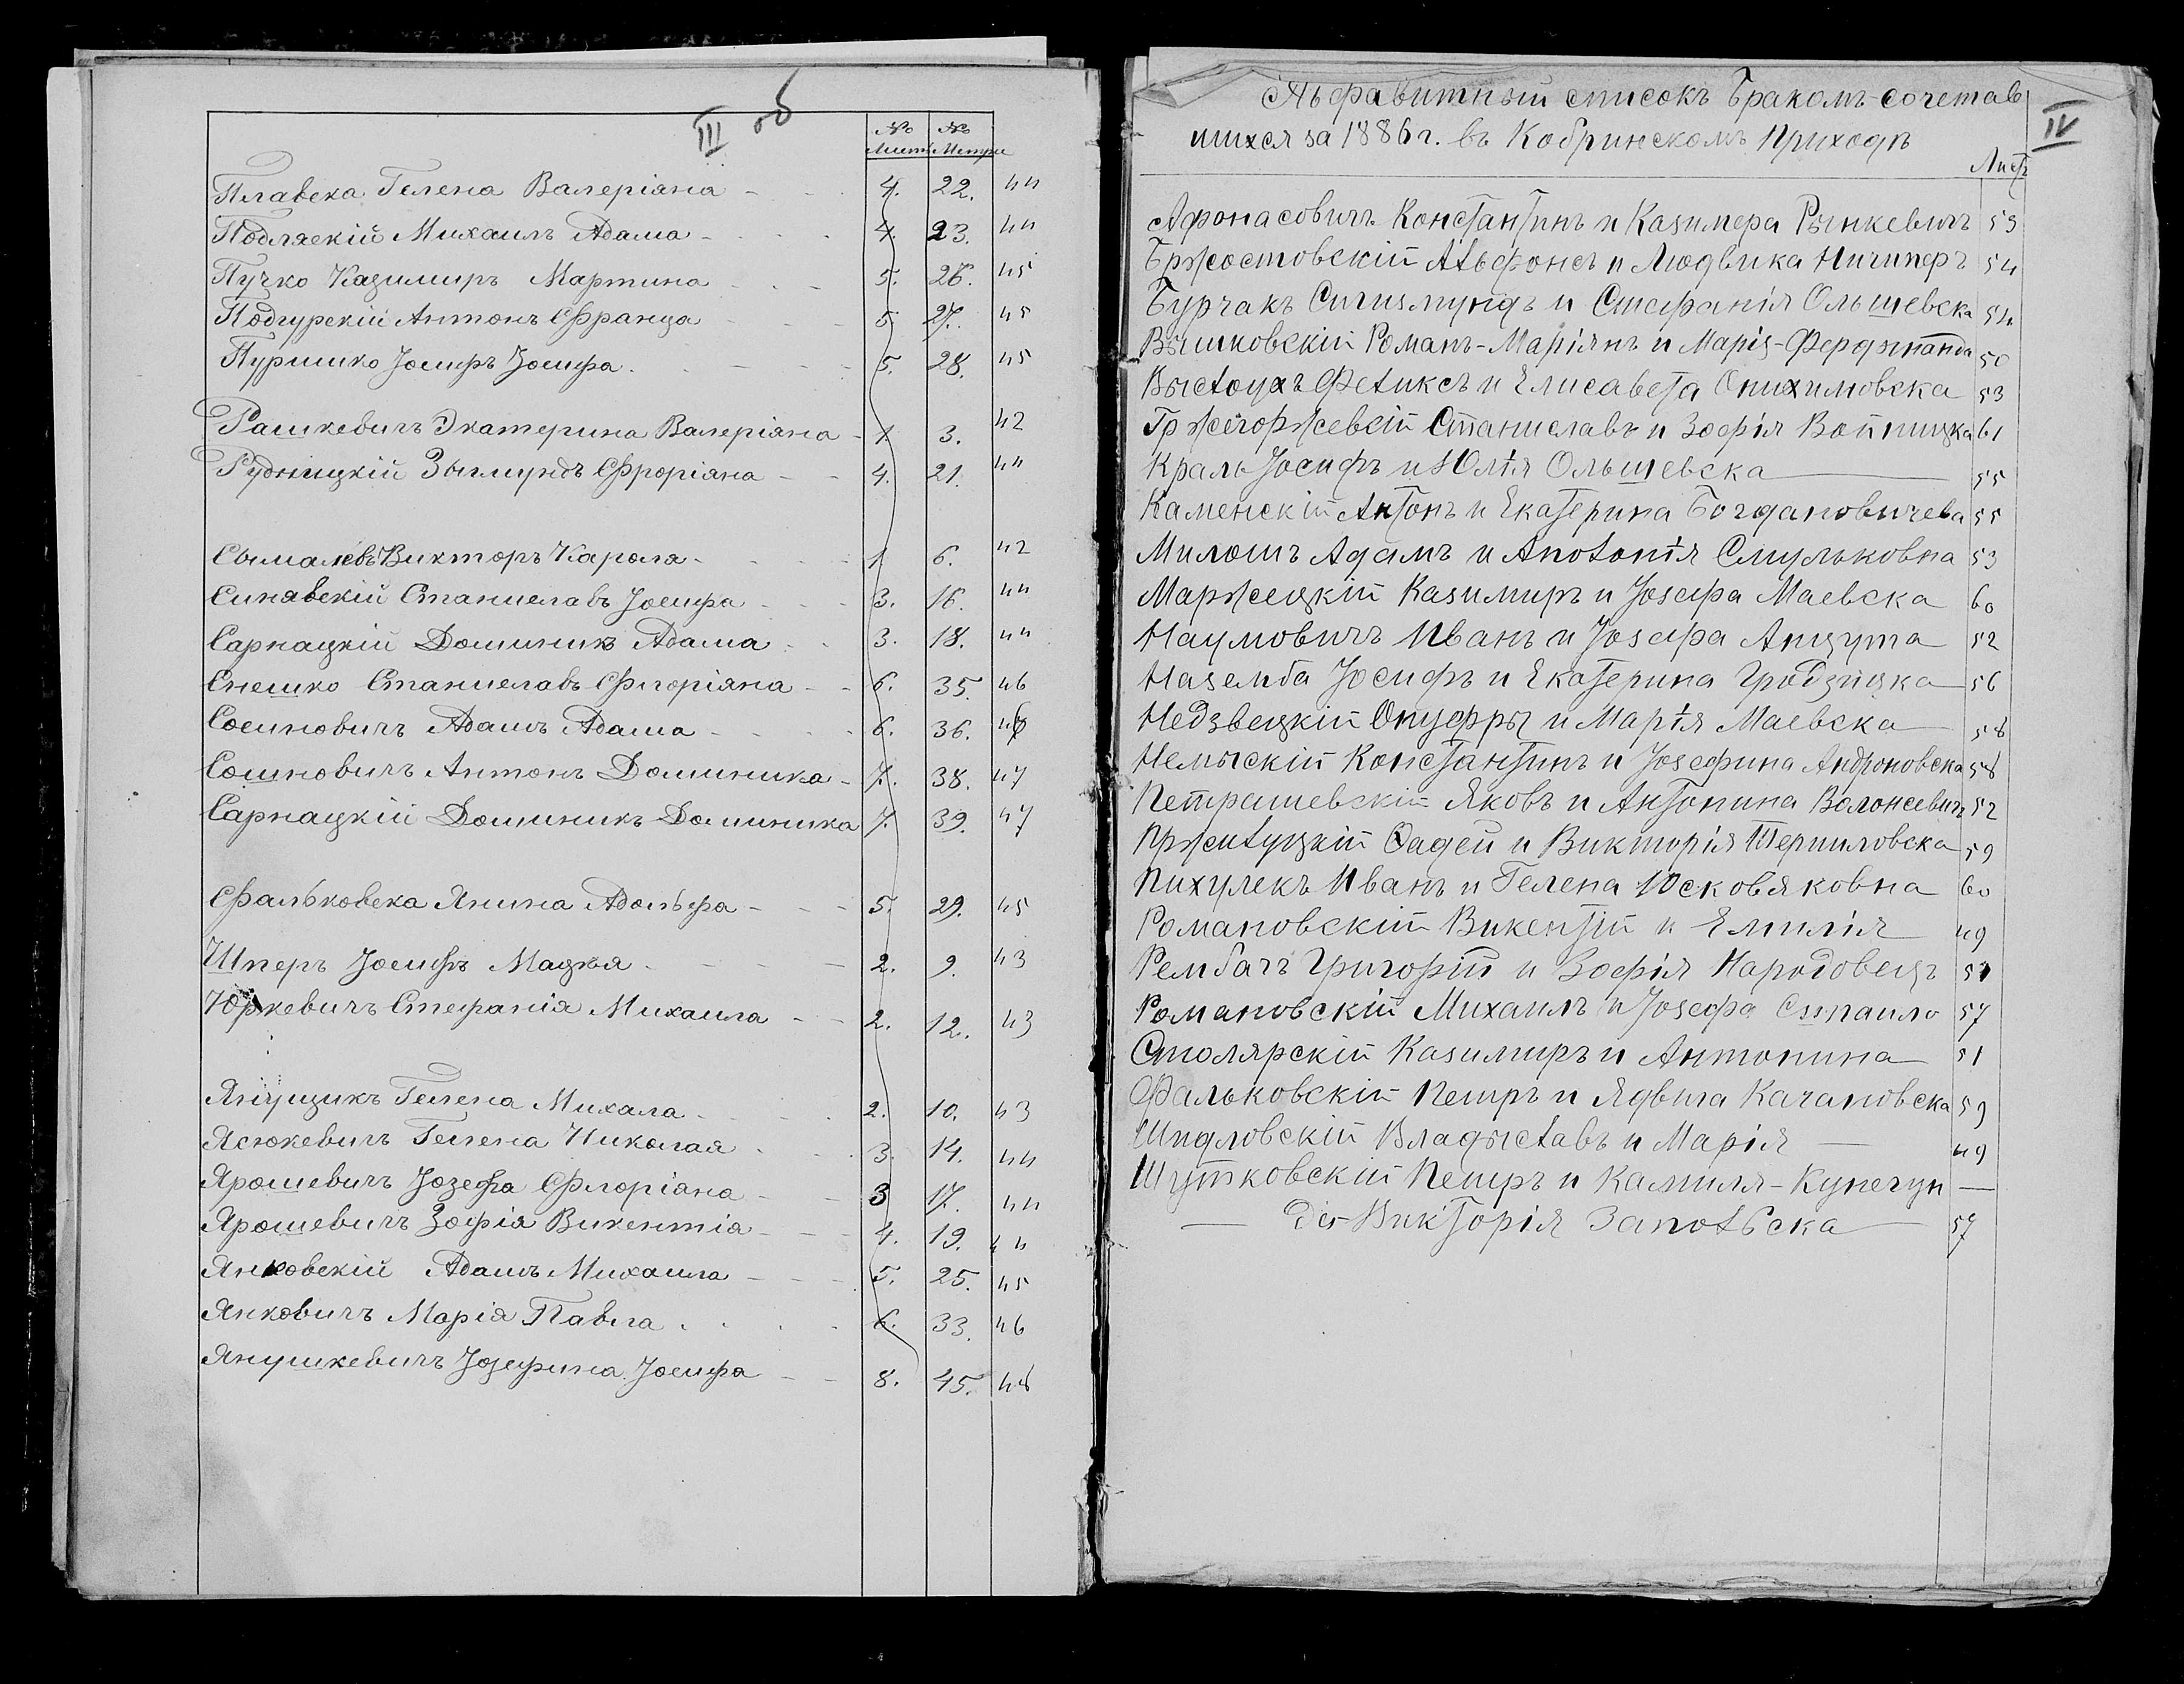 III об
№ Лист. № Метри
Плавска Гелена Валеріана - 4. 22. 44
Подляскій Михаилъ Адама - 4. 23. 44
Пучко Казимиръ Мартина - 5. 26. 45
Подгурскій Антонъ Франца - 5. 27. 45
Пуришко Іосифъ Іосифа. - 5. 28. 45
Рашкевичъ Экатерина Валеріана - 1 3. 42
Рудницкій Зыгмундъ Флоріана - 4. 21. 44
Викторъ Кароля - 1 6. 42
Синявскій Станиславъ Іосифа 3. 16. 44
Сарнацкій Доминикъ Адама 3. 18. 44
Снешко Станиславъ Флоріана - 6. 35. 46
Сосиновичъ Адамъ Адама - 6. 36. 46
Сошновичъ Антонъ Доминика - 7. 38. 47
Сарнацкій Доминикъ Доминика 7. 39. 47
Фальковска Янина Адольфа - 5. 29. 45
Шперъ Іосифъ Мацѣя - 2. 9. 43
Юркевичъ Стефанія Михаила - 2. 12. 43
Янущикъ Гелена Михала 2. 10. 43
Ясюкевичъ Гелена Николая 3. 14. 44
Ярошевичъ Іозефа Флоріана - 3 17. 44
Ярошевичъ Зофія Викентія - 4. 19. 44
Янковскій Адамъ Михаила - 5. 25. 45
Янковичъ Марія Павла 6. 33. 46
Янушкевичъ Іозефина Іосифа - 8. 45. 48
IV
Альфавитный списокъ Бракомъ-сочетав
шихся за 1886 г. въ Кобринскомъ Приходѣ
Лист
Афонасовичъ Константинъ и Казимера Рынкевичъ 53
Бржостовскій Альфонсъ и Людвика Ничиперъ 54
Бурчакъ Сигизмундъ и Стефанія Ольшевска 54
Вышковскій Романъ-Маріянъ и Марія- 50
Выслоухъ Феликсъ и Елисавета Опихимовска 53
Гржегоржевскій Станиславъ и Зофія Войницка 61
Краль Іосифъ и Юлія Ольшевска 55
Каменскій Антонъ и Екатерина Богдановичева 55
Милошъ Адамъ и Аполонія Смульковна 53
Маржецкій Казимиръ и Јозефа Маевска 60
Наумовичъ Иванъ и Јозефа Анцута 52
Наземба Іосифъ и Екатерина Гродзицка 56
Недзвецкій Онуфры и Марія Маевска 58
Немыскій Константинъ и Јозефина Андроновска 58
Петрашевскій Яковъ и Антонина Волонсевичъ 52
Пржилуцкій Фадей и Викторія Терпиловска 59
Пихулекъ Иванъ и Гелена Юсковяковна 60
Романовскій Викентій и Емилія 49
Рембачъ Григорій и Зофія Народовецъ 51
Романовскій Михаилъ и Јозефа Стпаило 57
Столярскій Казимиръ и Антонина 51
Фальковскій Петръ и Ядвига Качановска 59
Шидловскій Владыславъ и Марія — 49
Шутковскій Петръ и Камиля-Кунегун —
— да-Викторія Запольска 57